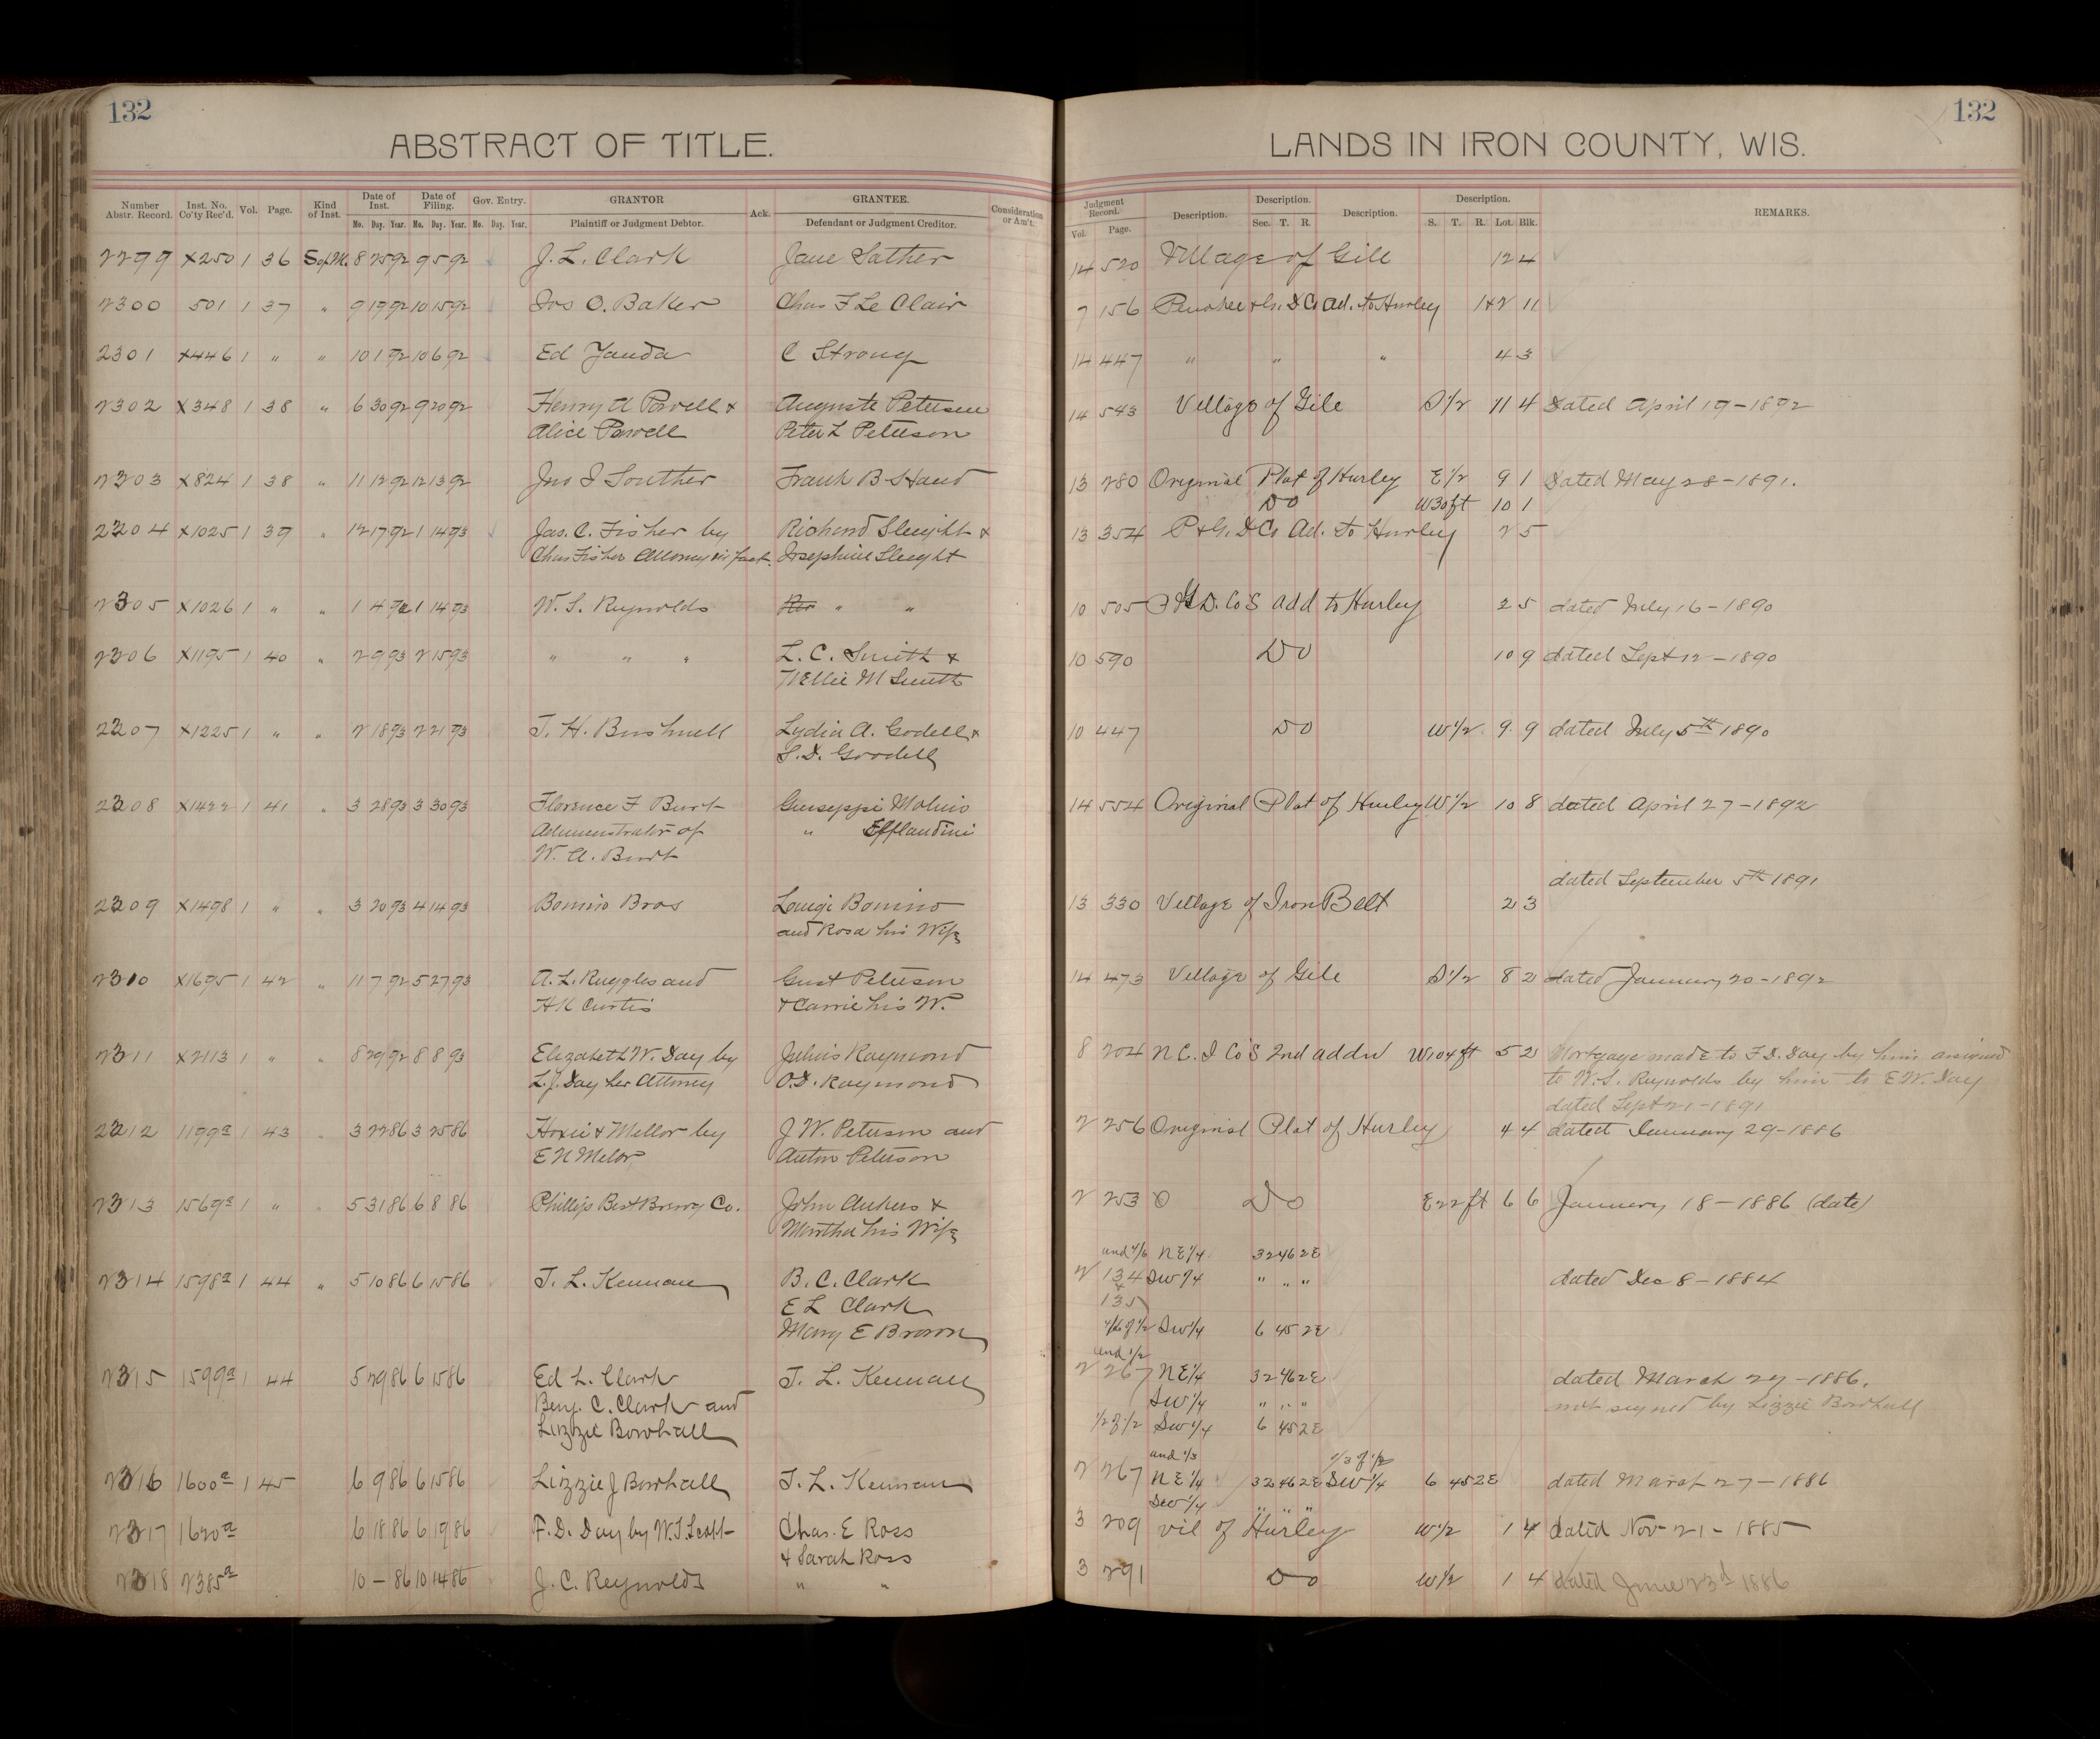 132
132
ABSTRACT OF TITLE.
LANDS IN IRON COUNTY, WIS.
Number Abstr. Record. Inst. No. Co'ty Rec'd. Vol. Page. Kind of Inst. Date of Inst. Mo. Day. Year. Date of Filing. Mo. Day. Year. Gov. Entry. Mo. Day. Year. GRANTOR Plaintiff or Judgment Debtor. Ack. GRANTEE. Defendant or Judgment Creditor. Consideration or Am't. Judgment Record. Vol. Page. Description. Description. Sec. T. R. Description. Description. S. T. R. Lot. Blk. REMARKS.
2299 X250 1 36 8 25 92 9 5 92 J. L. Clark Jane Sather 14 520 Village of Gile 12 4
2300 501 1 37 " 9 19 92 10 15 92 Jos O. Baker Chas F Le Clair 7 156 Penokee & G. D Co ad. to Hurley 1&2 11
2301 X446 1 " " 10 1 92 10 6 92 Ed Janda C Strong 14 447 " " " 4 3
2302 X348 1 38 " 6 30 92 9 20 92 Henry A Powell & Auguste Peterson 14 543 Village of Gile S1/2 11 4 Dated April 19-1892
Alice Powell Peter L Peterson
2303 X824 1 38 " 11 12 92 12 13 92 Jno I Souther Frank B Hand 13 280 Original Plat of Hurley E1/2 9 1 Dated May 28-1891.
Do W30ft 10 1
2204 X1025 1 39 " 12 17 92 1 14 93 Jas. C. Fisher by Richard Sleight & 13 354 P & G. D Co Ad. to Hurley 2 5
Chas Fisher Attorney in fact. Josephine Sleight
2305 X1026 1 " " 1 4 92 1 14 93 W. S. Reynolds " " 10 505 D. Co's add to Hurley 2 5 dated July 16-1890
2306 X1195 1 40 " 2 9 93 2 15 93 " " " L. C. Smith & 10 590 Do 10 9 dated Sept 12-1890
Nellie M Smith
2207 X1225 1 " " 2 18 93 2 21 93 T. H. Bushnell Lydia A. Godell & 10 447 Do W1/2 9 9 dated July 5th 1890
S. D. Goodell
2208 X1422 1 41 " 3 28 93 3 30 93 Florence F Burt Guiseppi Molino 14 554 Original Plat of Hurley W1/2 10 8 dated April 27-1892
Administrator of " Efflandini
W. A. Burt
dated September 5th 1891
2209 X1498 1 " " 3 20 93 4 14 93 Bonino Bros Louigi Bonino 13 330 Village of Iron Belt 2 3
and Rosa his Wife
2310 X1695 1 42 " 11 7 92 5 27 93 A. L. Ruggles and Gust Peterson 14 473 Village of Gile S1/2 8 2 dated January 20-1892
H K Curtis & Carrie his W.
2311 X2113 1 " " 8 29 92 8 8 93 Elizabeth W. Day by Julius Raymond 8 204 N C. I Co's 2nd addn W104ft 5 2 Mortgage made to F. D. Day by him assigned
L. J. Day her Attorney O. D. Raymond to W. S. Reynolds by him to E. W. Day
dated Sept 21-1891
2212 1199a 1 43 " 3 22 86 3 25 86 Hoxie & Mellor by J W. Peterson and 2 256 Original Plat of Hurley 4 4 dated January 29-1886
E N Melor Anton Peterson
2313 1569a 1 " " 5 31 86 6 8 86 Phillip Best Brewg Co. John Ankers & 2 253 Do E22ft 6 6 January 18-1886 (date)
Martha his Wife
und 1/6 NE1/4 32 46 2E
2314 1598a 1 44 " 5 10 86 6 15 86 T. L. Kennan B. C. Clark 2 134 SW1/4 " " " dated Dec 8-1884
E L Clark & 135
Mary E Brown 1/6 of 1/2 SW1/4 6 45 2E
und 1/2
2315 1599a 1 44 5 29 86 6 15 86 Ed L. Clark T. L. Kennan 2 267 NE1/4 32 46 2E dated March 27-1886.
Benj. C. Clark and SW1/4 " " " not signed by Lizzie Bowhall
Lizzie Bowhall 1/2 of 1/2 SW1/4 6 45 2E
und 1/3 1/3 of 1/2
2316 1600a 1 45 6 9 86 6 15 86 Lizzie J Bowhall T. L. Kennan 2 267 NE1/4 32 46 2E SW1/4 6 45 2E dated March 27-1886
SW1/4 " " "
2317 1620a 6 18 86 6 19 86 F. D. Day by W. S. Scott Chas. E Ross 3 209 vil of Hurley W1/2 1 4 dated Nov 21-1885
& Sarah Ross
2318 2385a 10 - 86 10 14 86 J. C. Reynolds " " 3 291 Do W1/2 1 4 dated June 23d 1886